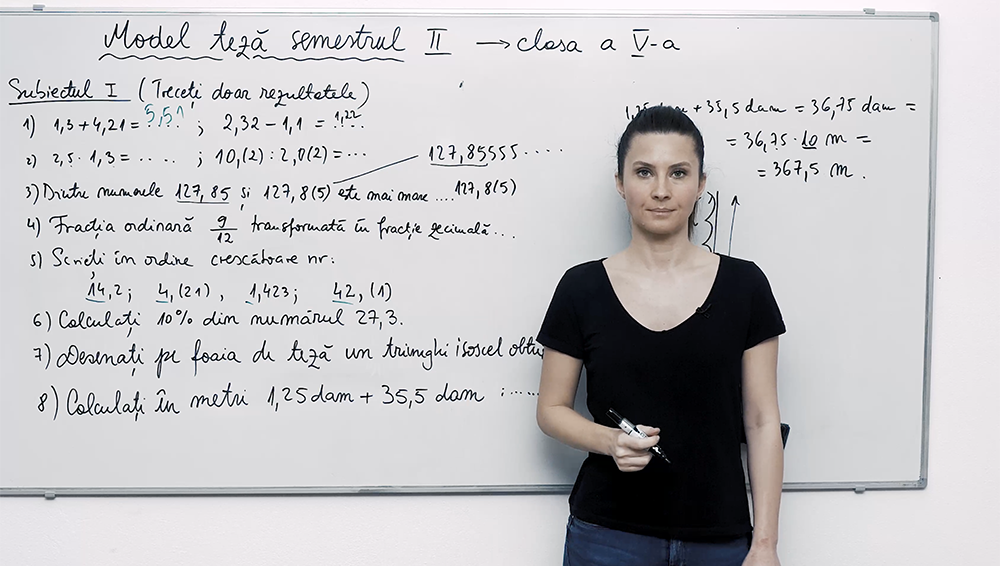 Model teză semestrul II → clasa a V-a
Subiectul I (Treceți doar rezultatele)
1) 1,3 + 4,21 = 5,51 ; 2,32 - 1,1 = 1,22
2) 2,5 · 1,3 = .... ; 10,(2) : 2,0(2) = ...
127,85555 .....
3) Dintre numerele 127,85 și 127,8(5) este mai mare .... 127,8(5)
4) Fracția ordinară 9/12 transformată în fracție zecimală ...
5) Scrieți în ordine crescătoare nr:
14,2 ; 4,(21) , 1,423 ; 42,(1)
6) Calculați 10% din numărul 27,3.
7) Desenați pe foaia de teză un triunghi isoscel
8) Calculați în metri 1,25 dam + 35,5 dam : .....
+ 35,5 dam = 36,75 dam =
= 36,75 · 10 m =
= 367,5 m .